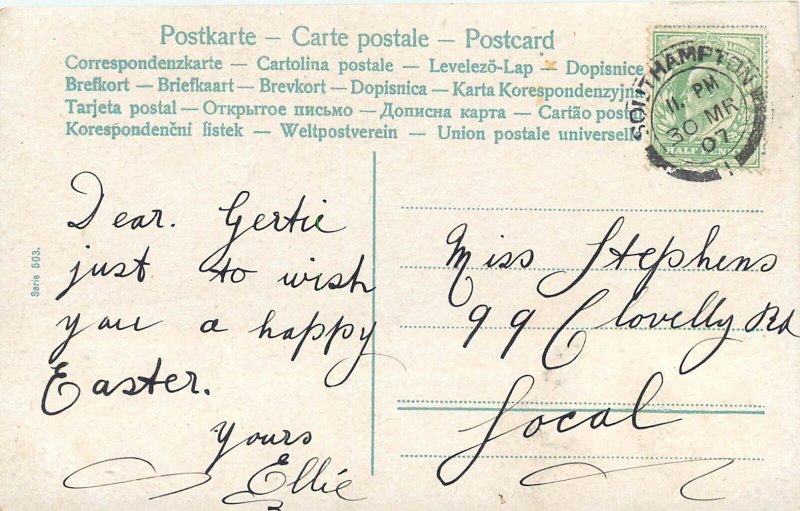 Postkarte – Carte postale – Postcard
Correspondenzkarte – Cartolina postale – Levelezö-Lap – Dopisnice
Brefkort – Briefkaart – Brevkort – Dopisnica – Karta Korespondenzyjna
Tarjeta postal – Открытое письмо – Дописна карта – Cartão postal
Korespondenční lístek – Weltpostverein – Union postale universelle
SOUTHAMPTON
11. PM
30 MR
07
1
HALF PENNY
Serie 503.
Dear. Gertie
just to wish
you a happy
Easter.
Yours
Ellie
Miss Stephens
99 Clovelly Rd
Local